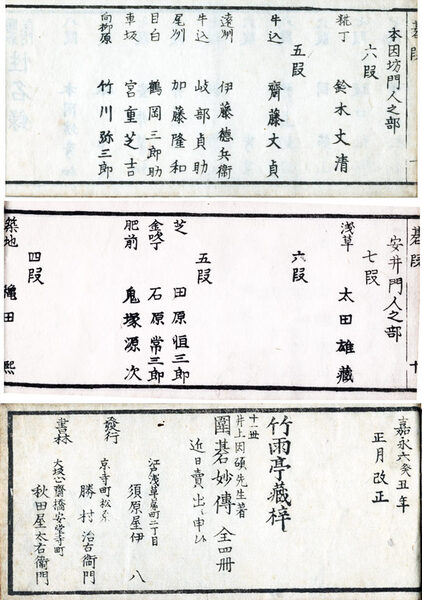 本因坊門人之部
六段
糀丁 鈴木丈清
五段
牛込 齋藤大貞
遠州 伊藤德兵衛
牛込 岐部貞助
尾州 加藤隆和
目白 鶴岡三郎助
車坂 宮重芝吉
向柳原 竹川弥三郎
碁段 十
安井門人之部
七段
浅草 太田雄藏
六段
五段
芝 田原恒三郎
金吹丁 石原常三郎
肥前 鬼塚源次
四段
築地 熙
嘉永六癸丑年
正月改正
竹雨亭藏梓
十二世
井上因碩先生著
圍碁妙傳 全四冊
近日賣出し申候
江戸浅草茅町二丁目
須原屋伊八
發行
京寺町松原
勝村治右衞門
書林
大坂心齋橋安堂寺町
秋田屋太右衞門